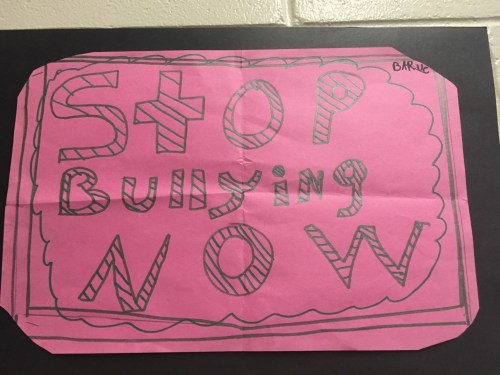 BARNE
StOP
Bullying
NOW